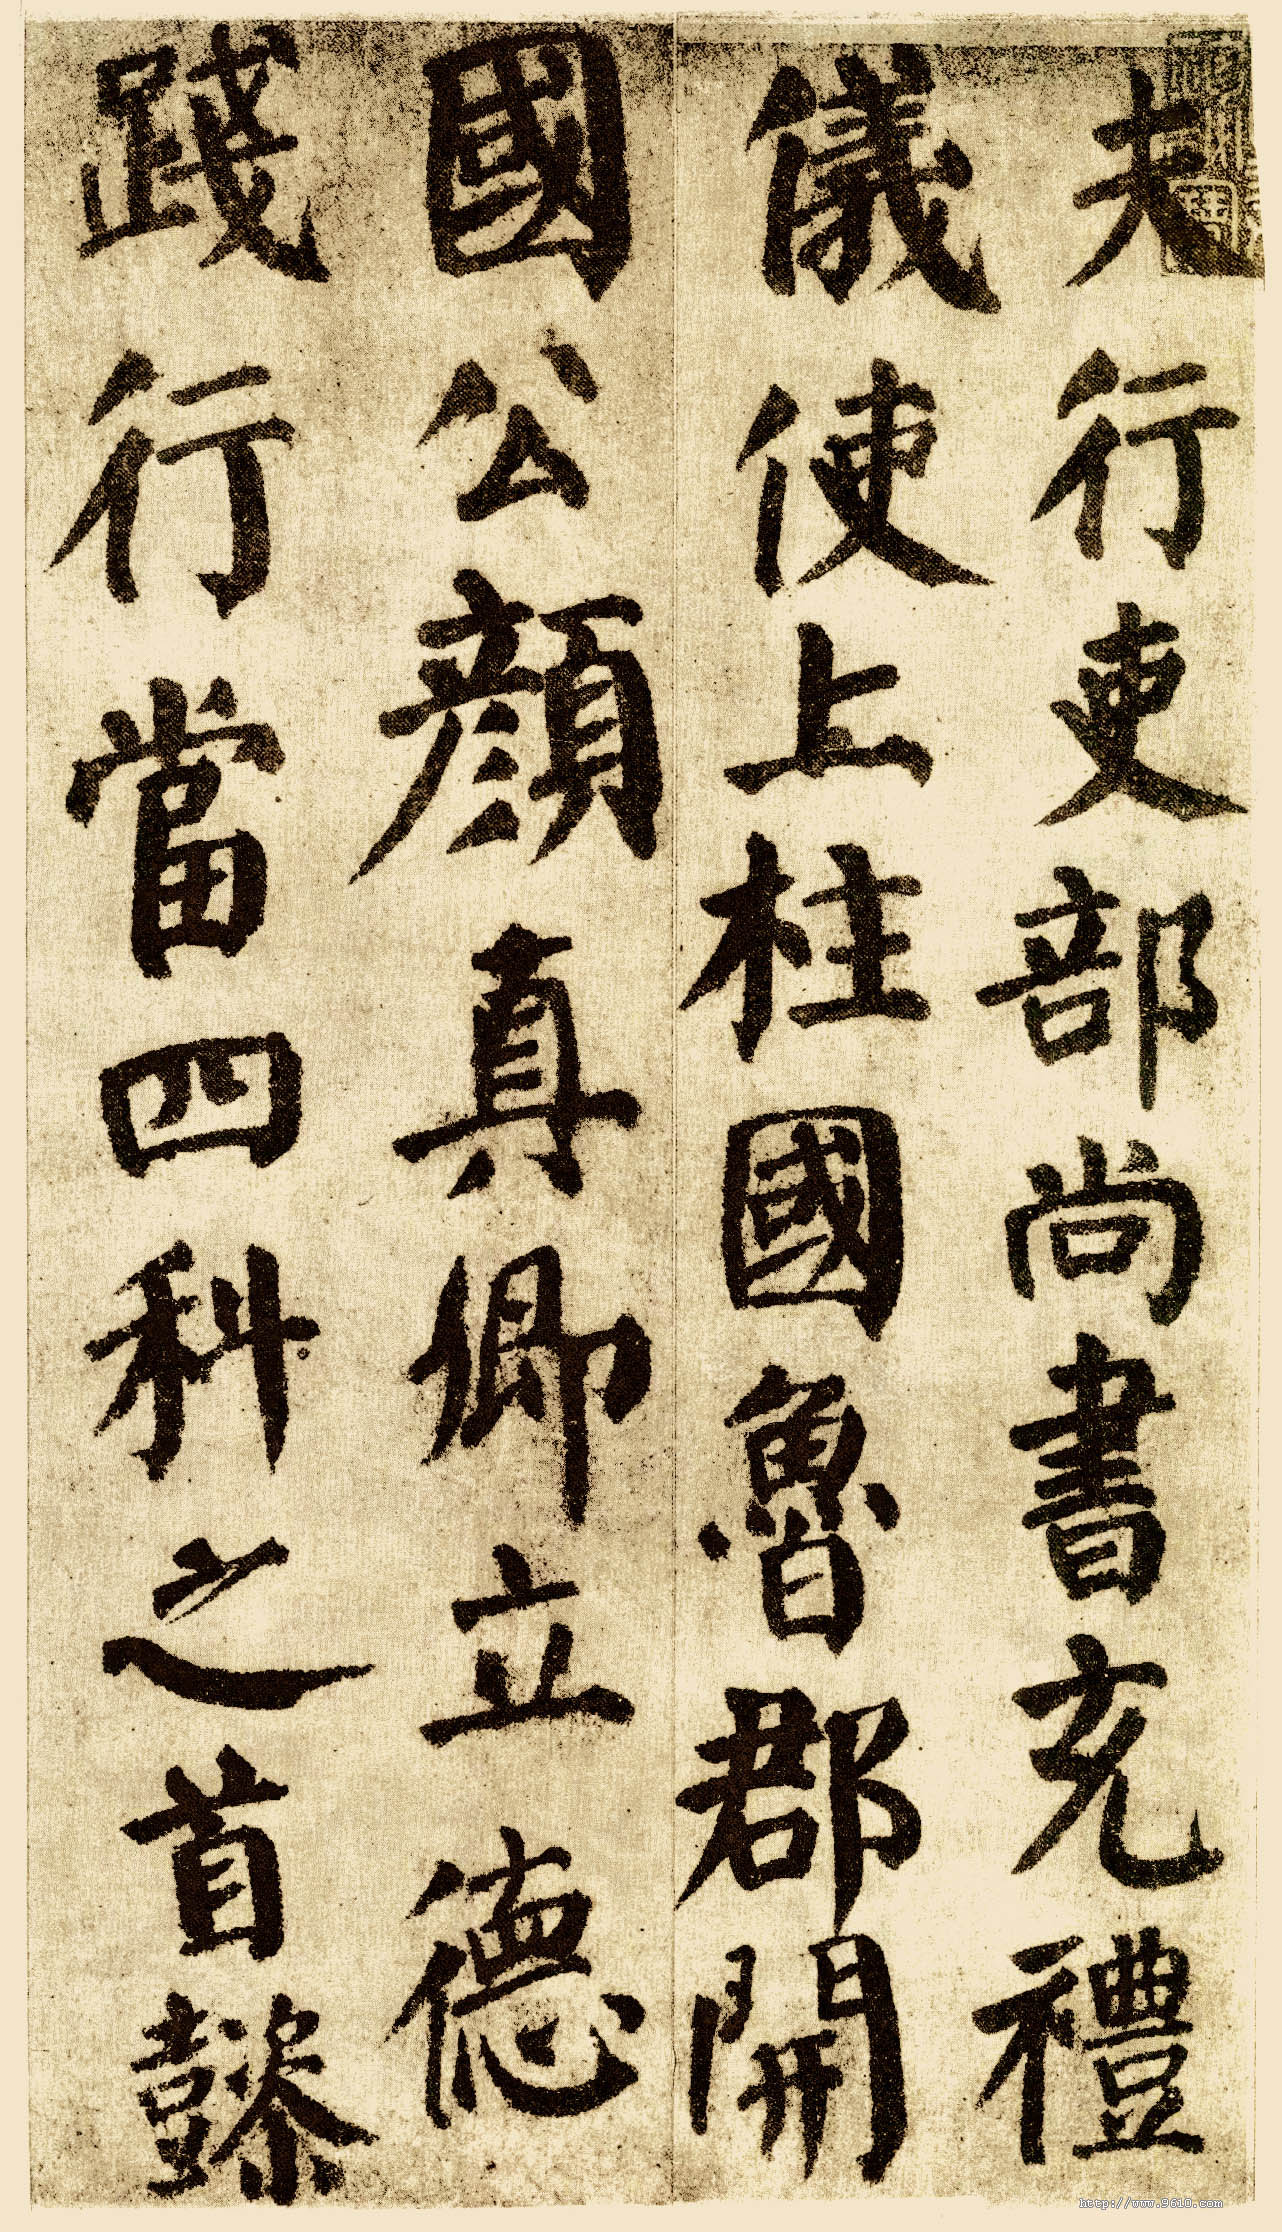 夫行吏部尚書充禮
儀使上柱國魯郡開
國公顏真卿立德
踐行當四科之首懿
http://www.9610.com